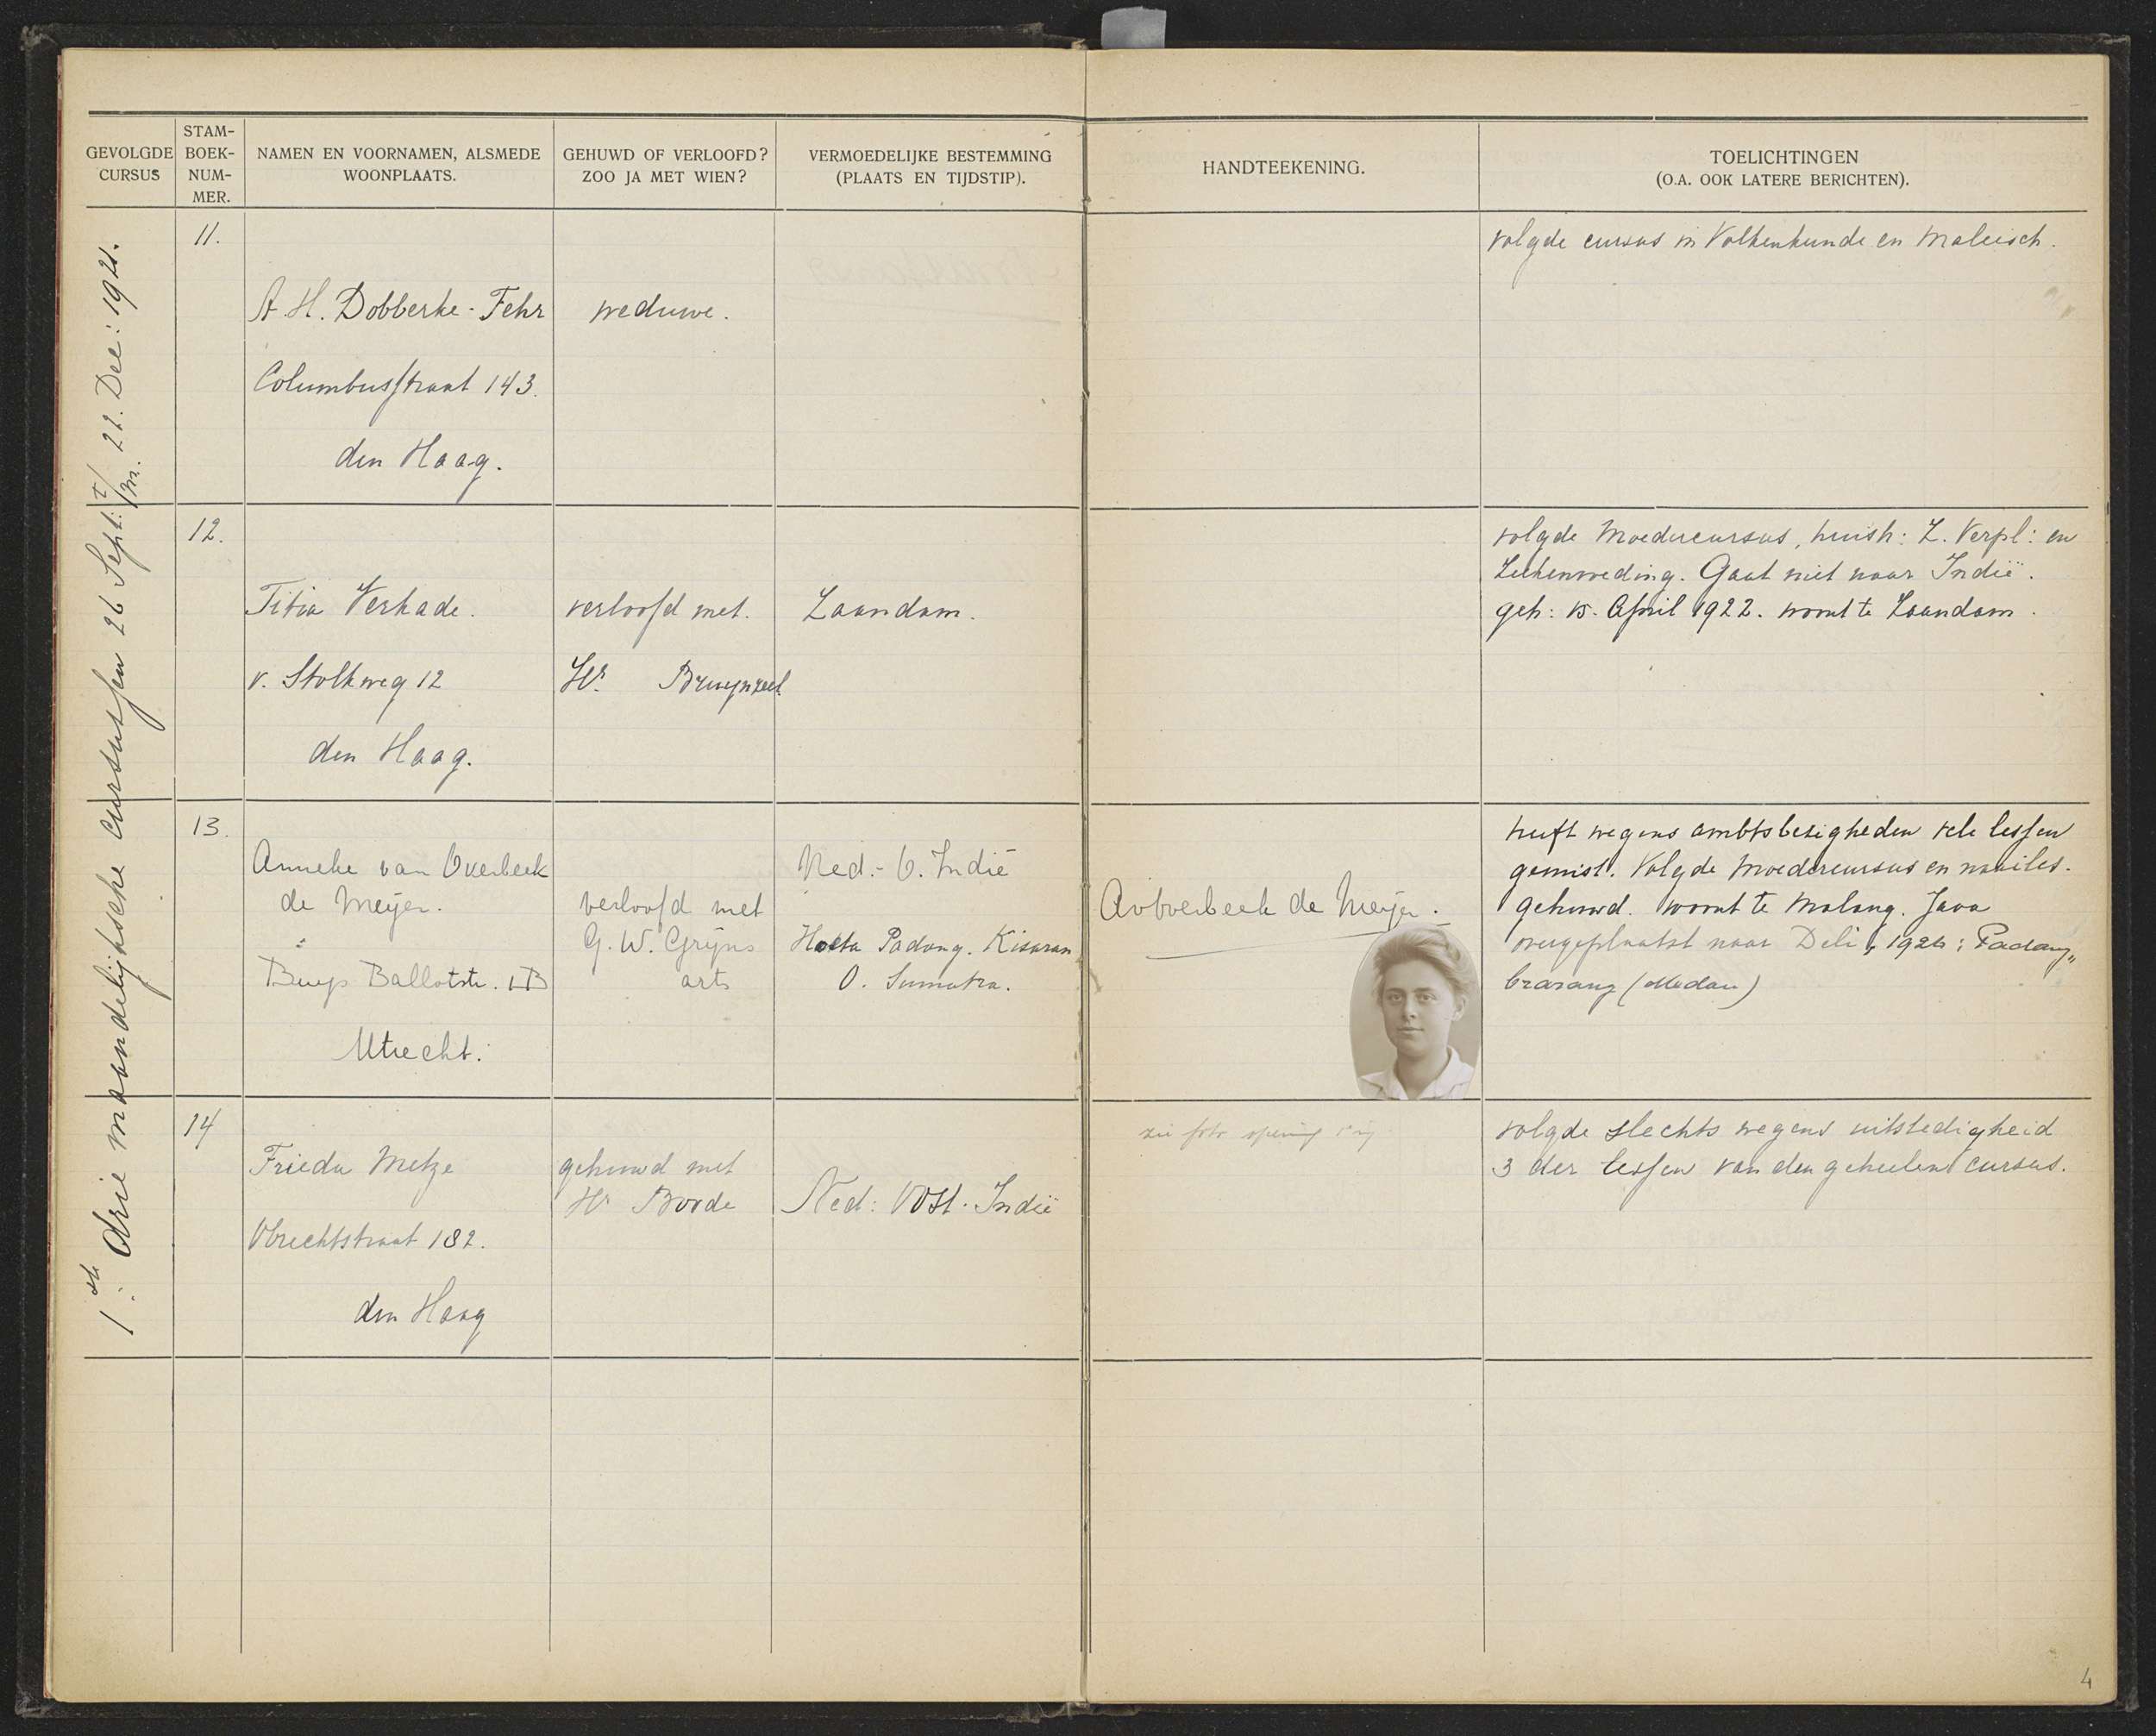 GEVOLGDE CURSUS
STAM-BOEK-NUM-MER.
NAMEN EN VOORNAMEN, ALSMEDE WOONPLAATS.
GEHUWD OF VERLOOFD? ZOO JA MET WIEN?
VERMOEDELIJKE BESTEMMING (PLAATS EN TIJDSTIP).
HANDTEEKENING.
TOELICHTINGEN (O.A. OOK LATERE BERICHTEN).
1ste drie maandelijksche cursussen 26 Sept: t/m. 22. Dec: 1921.
11.
A. H. Dobberke-Fehr
Columbusstraat 143.
den Haag.
weduwe.
volgde cursus in Volkenkunde en Maleisch.
12.
Titia Verkade.
v. Stolkweg 12
den Haag.
verloofd met.
Hr. Bruynzeel
Zaandam.
volgde Moedercursus, huish: Z. Verpl: en
Ziekenvoeding. Gaat niet naar Indië.
geh: 15. April 1922. woont te Zaandam.
13.
Anneke van Overbeek
de Meyer.
Buys Ballotstr.
Utrecht.
verloofd met
G. W. Grijns
arts
Ned.- O. Indië
Hoeta Padang. Kisaran
O. Sumatra.
AvOverbeek de Meyer.
heeft wegens ambtsbezigheden vele lessen
gemist. Volgde Moedercursus en naailes.
gehuwd. woont te Malang. Java
overgeplaatst naar Deli, 1924: Padang
brarang (Medan)
14
Frieda Metze
Obrechtstraat 182.
den Haag
gehuwd met
Hr Boode
Ned: Oost. Indië
zie foto
volgde slechts wegens uitstedigheid
3 der lessen van den geheelen cursus.
4